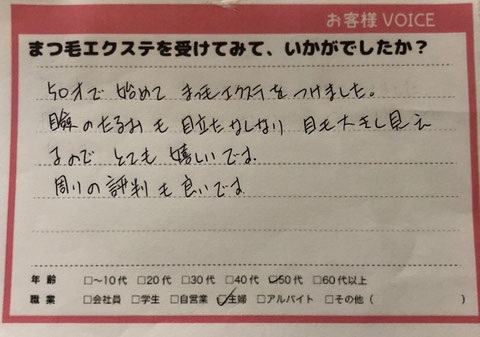 お客様 VOICE
まつ毛エクステを受けてみて、いかがでしたか？
50才で 始めて まつ毛エクステを つけました。
瞼のたるみも 目立たなくなり 目も大きく見え
るので とても 嬉しいです
周りの 評判も 良いです
年齢 □〜10代 □20代 □30代 □40代 ☑50代 □60代以上
職業 □会社員 □学生 □自営業 ☑主婦 □アルバイト □その他（ ）